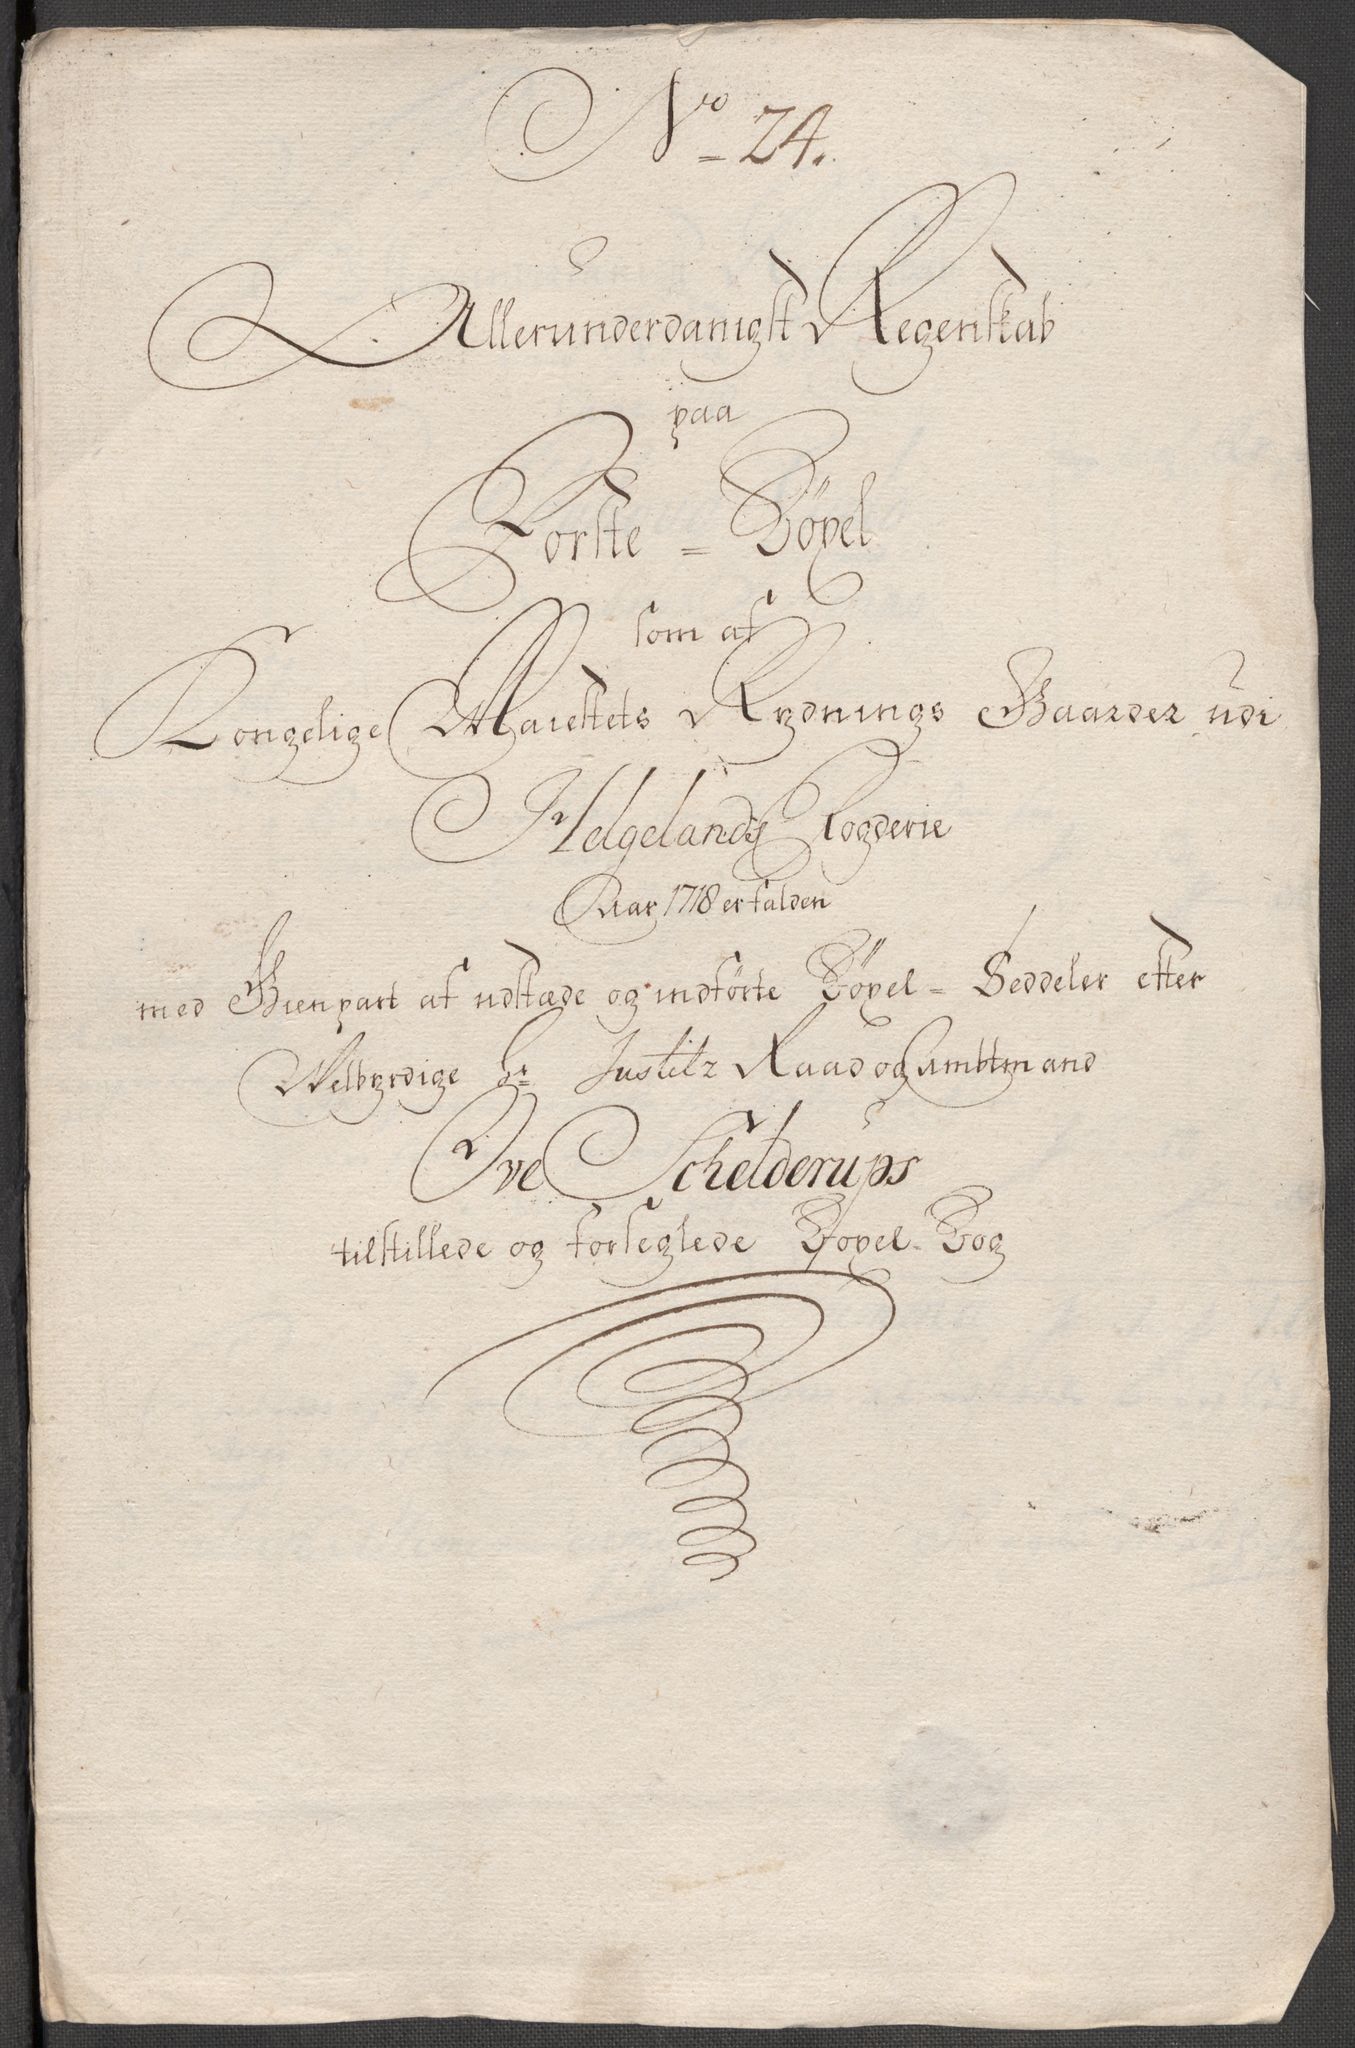 No 24.
Allerunderdanigst Regenskab
paa
Förste = Böxel
som af
Kongelige Maiestets Rydnings Gaarder udi
Helgelands Fogderie
Aar 1718 erfalden
med Gienpart af udstæde og indförte Böxel = Seddeler efter
Welbyrdige Hr Justitz Raad og Ambtmand
Ove Schelderups
tilstillede og forseglede Böxel = Bog